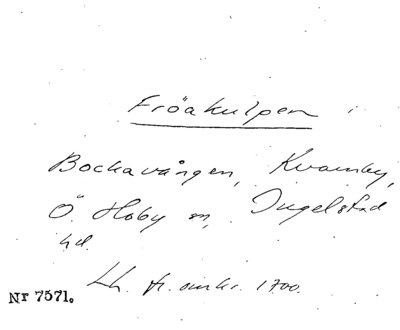 Fröakulpen
Bockavången, Kvarnby,
Ö. Hoby sn, Ingelstad
hd.
Lh. fr. omkr. 1700.
Nr 7571.